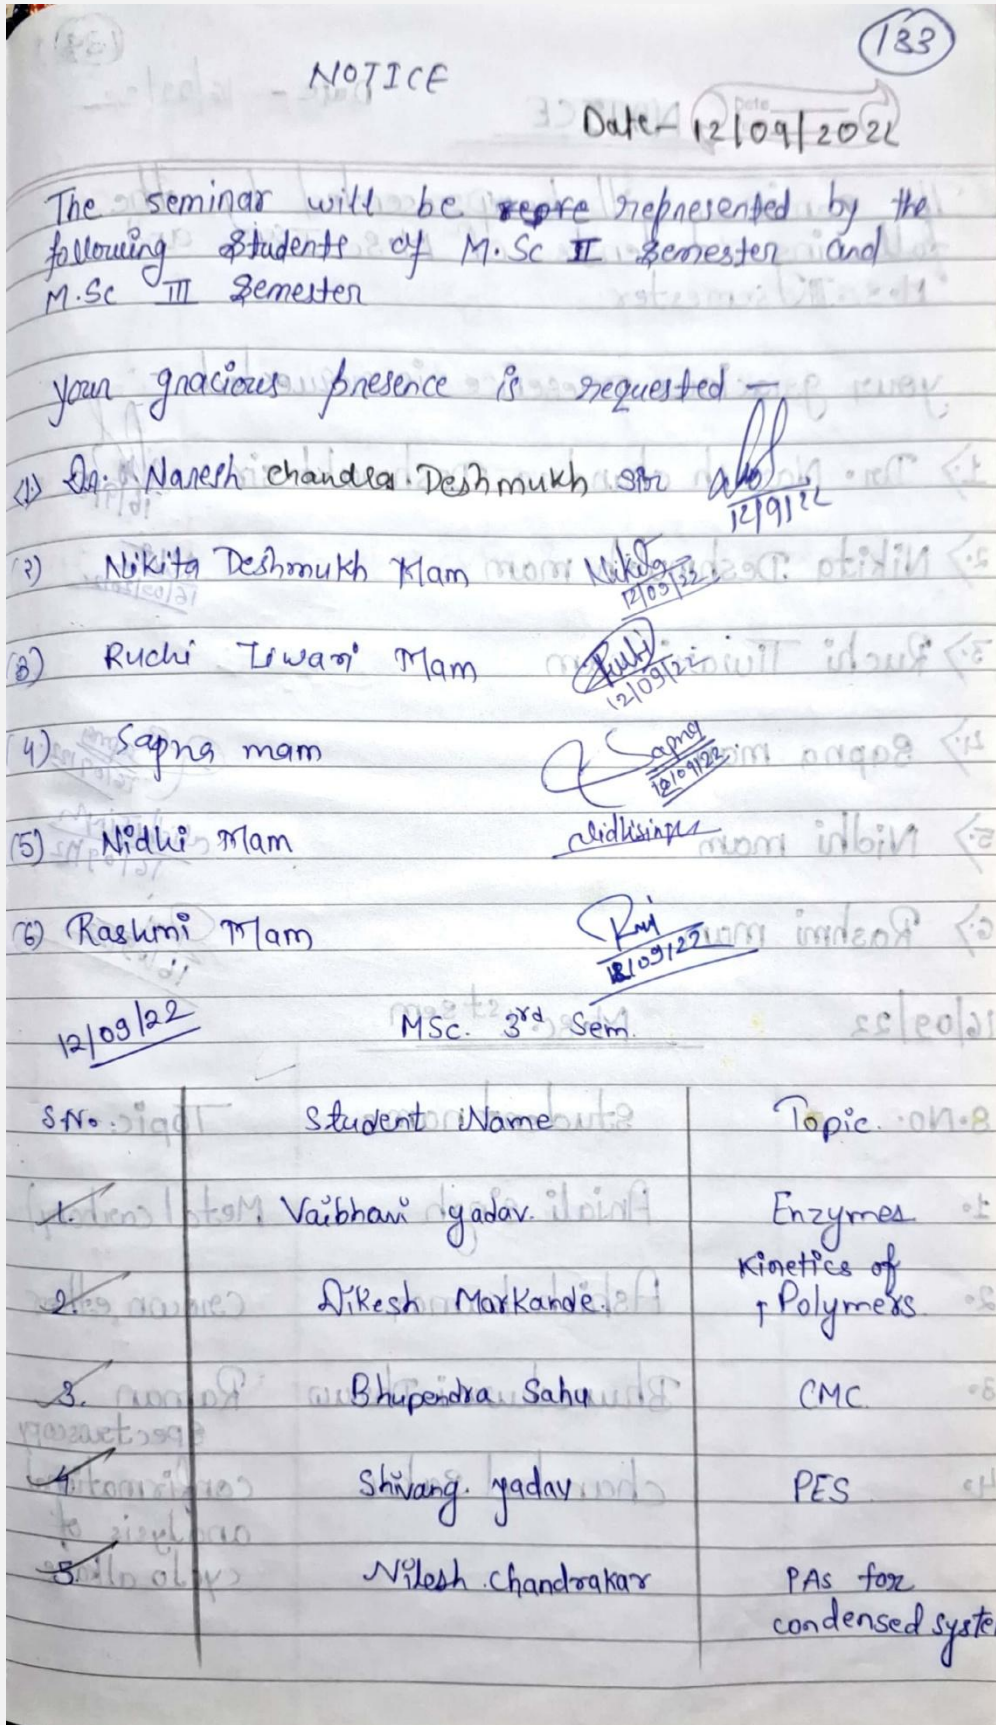 133
NOTICE
Date
Date- 12/09/2022
The seminar will be repre represented by the
following students of M.Sc II Semester and
M.Sc III Semester
your gracious presence is requested –
(1) Dr. Naresh Chandra Deshmukh Sir
12/9/22
(2) Nikita Deshmukh Mam Nikita
12/09/22
(3) Ruchi Tiwari Mam Ruchi
12/09/22
4) Sapna mam Sapna
12/09/22
(5) Nidhi Mam Nidhisingh
(6) Rashmi Mam
12/09/22
12/09/22 MSc. 3rd Sem.
S.No. Student Name Topic.
1. Vaibhavi yadav. Enzymes
Kinetics of
2. Dikesh Markande. ↑ Polymers
3. Bhupendra Sahu CMC
4. Shivang. yadav PES
5. Nilesh Chandrakar PAs for
condensed syste